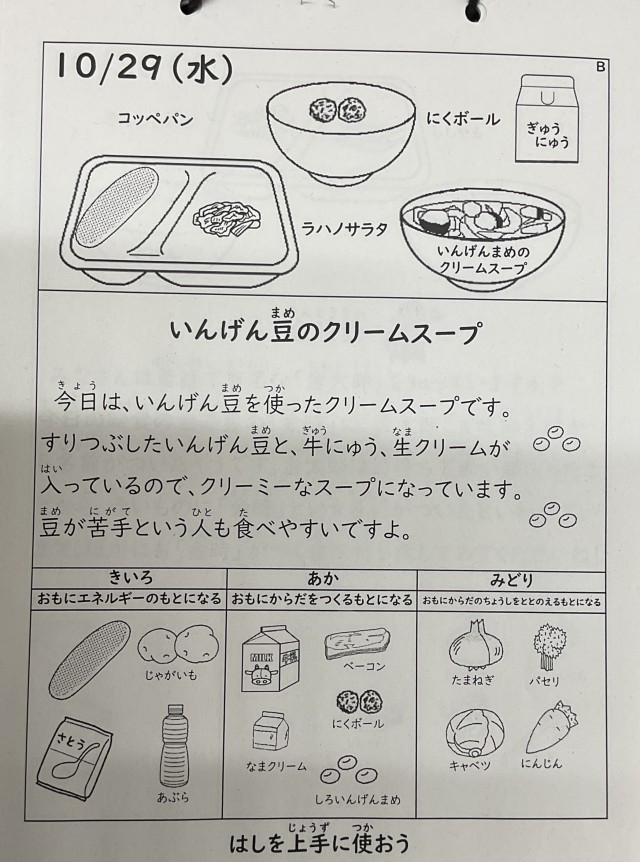 10/29(水)
B
コッペパン
にくボール
ぎゅう
にゅう
ラハノサラタ
いんげんまめの
クリームスープ
いんげん豆のクリームスープ
まめ
今日は、いんげん豆を使ったクリームスープです。
きょう まめ つか
すりつぶしたいんげん豆と、牛にゅう、生クリームが
まめ ぎゅう なま
入っているので、クリーミーなスープになっています。
はい
豆が苦手という人も食べやすいですよ。
まめ にがて ひと た
きいろ
おもにエネルギーのもとになる
じゃがいも
さとう
あぶら
あか
おもにからだをつくるもとになる
MILK
ベーコン
にくボール
なまクリーム
しろいんげんまめ
みどり
おもにからだのちょうしをととのえるもとになる
たまねぎ
パセリ
キャベツ
にんじん
はしを上手に使おう
じょうず つか